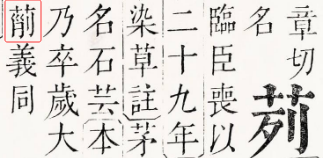 章切
名茢
臨臣喪以
二十九年
染草註茅
名石芸本
乃卒歲大
葥義同